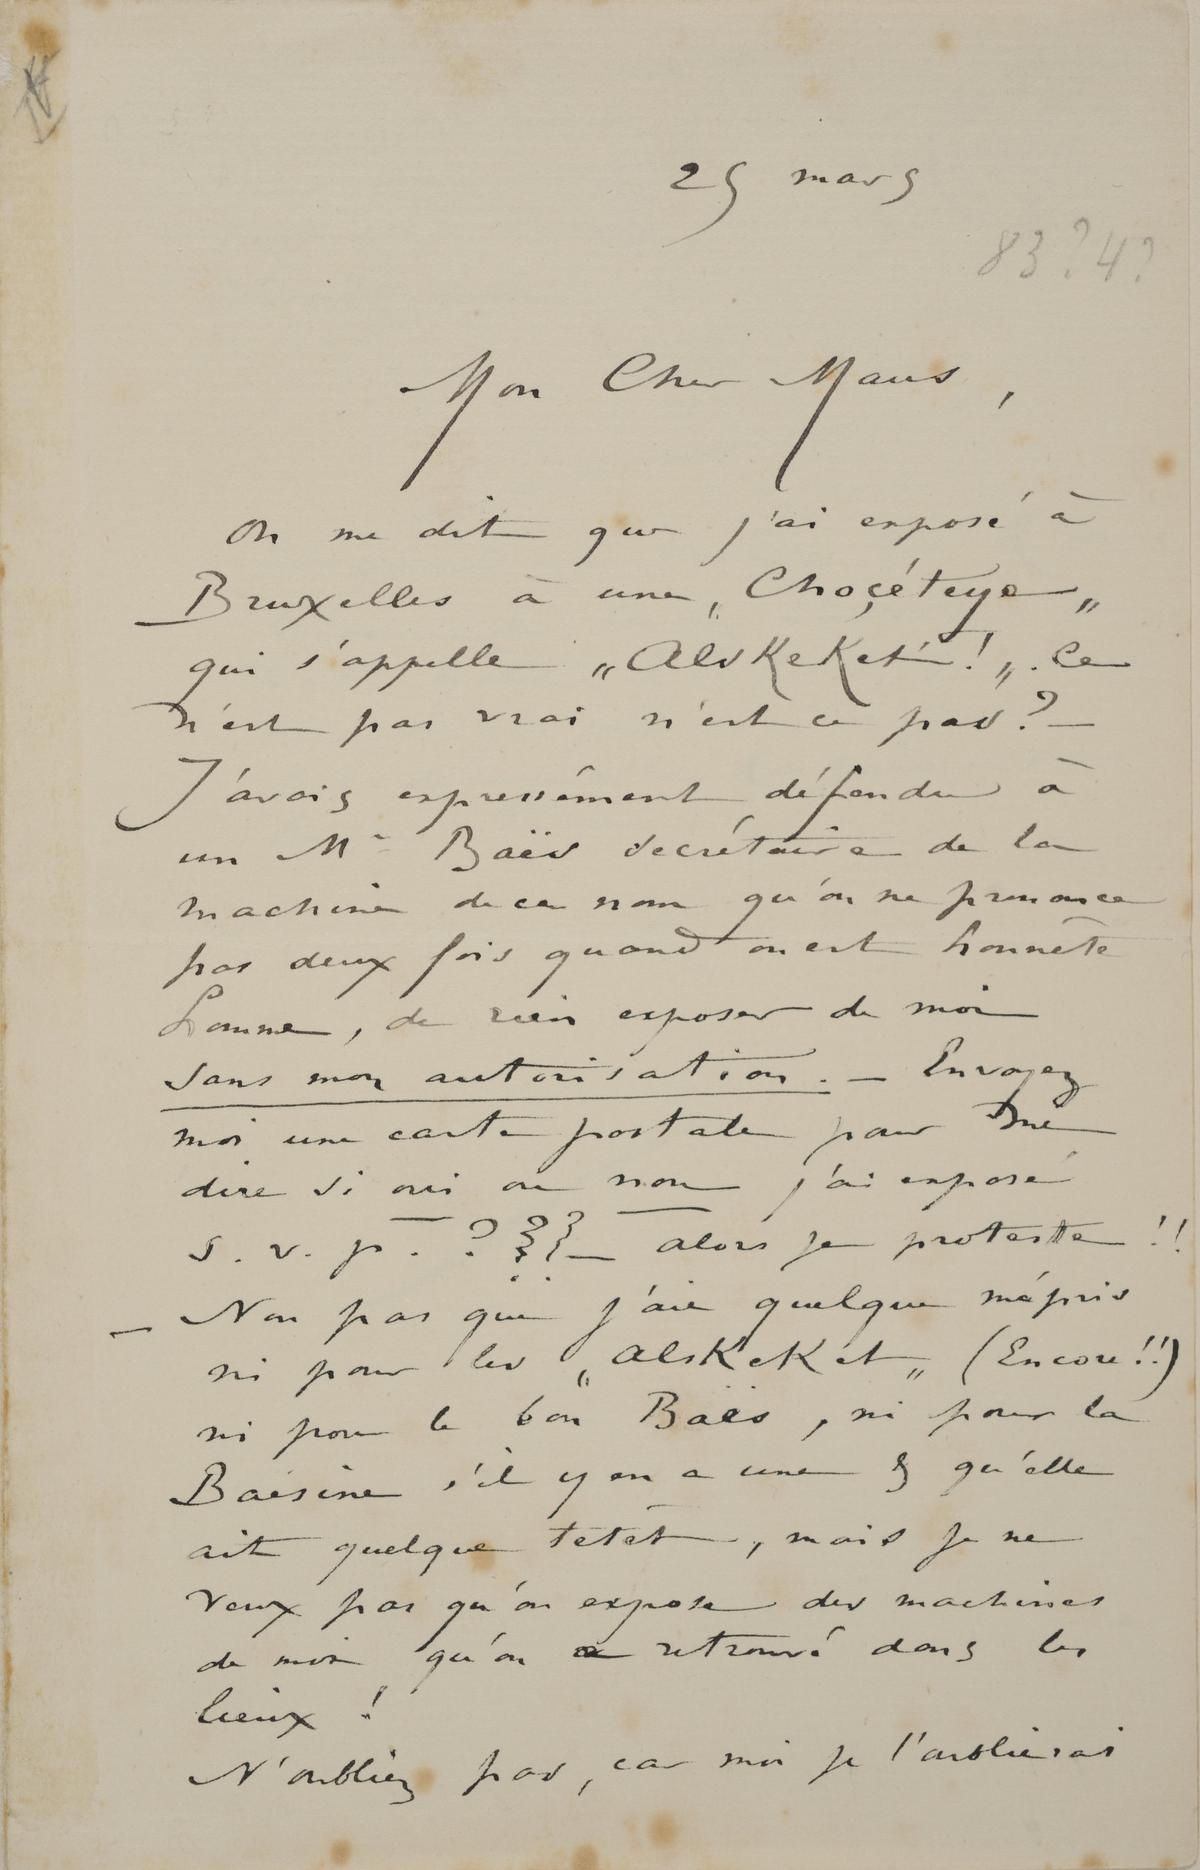 25 mars
83? 4?
Mon Cher Maus,
On me dit que j'ai exposé à
Bruxelles à une „Choçéteye„
qui s'appelle „AlsKeKet! „. Ce
n'est pas vrai n'est ce pas? —
J'avais expressément défendu à
un Mr Baës secrétaire de la
machine de ce nom qu'on ne prononce
pas deux fois quand on est honnête
homme, de rien exposer de moi
sans mon autorisation. — Envoyez
moi une carte postale pour me
dire si oui ou non j'ai exposé
s. v. p. ? ?? — alors je proteste !!
— Non pas que j'aie quelque mépris
ni pour les „AlsKeKet„ (Encore!!)
ni pour le bon Baës, ni pour la
Baësine s'il y en a une & qu'elle
ait quelque tétét, mais je ne
veux pas qu'on expose des machines
de moi qu'on a retrouvé dans les
lieux !
N'oubliez pas, car moi je l'oublierai